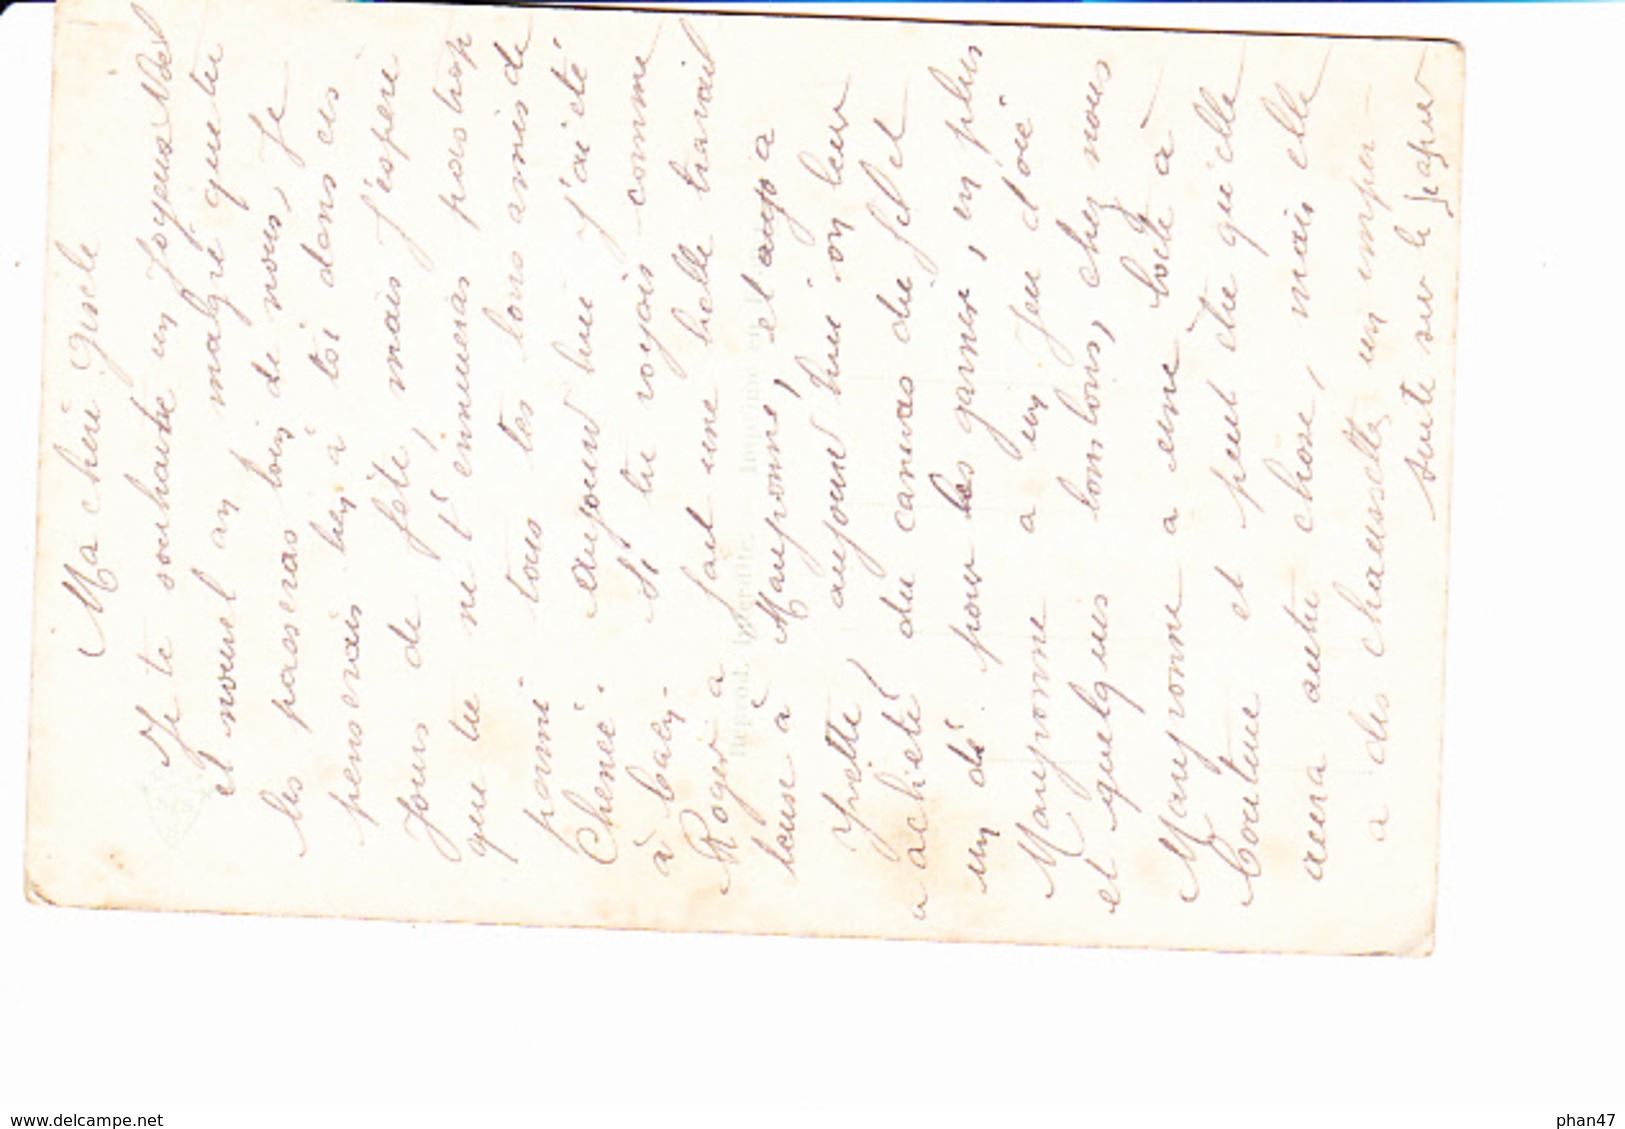 Ma chère Gisèle
Je te souhaite un Joyeux Noël
et nouvel an malgré que tu
les passeras loin de nous, Je
penserais bien à toi dans ces
Jours de fête, mais J'espère
que tu ne t'ennueras pas trop
parmi tous tes bons amis de
Chenée. Aujourd'hui J'ai été
à si tu voyais comme
Roger a fait une belle travail
leuse à Mauponne, et aussi a
Yvette, aujourd'hui on leur
a achété du canvas du fil et
un dé pour les garnir, en plus
Mauponne a un jeu d'oie
et quelques bonbons, chez nous
Mauponne a une boîte à
Couture et peut être qu'elle
aura autre chose, mais elle
a des chaussettes un imper-
suite sur le papier
Reprod. Interdite. — Imprimé en
delcampe.net
phan47